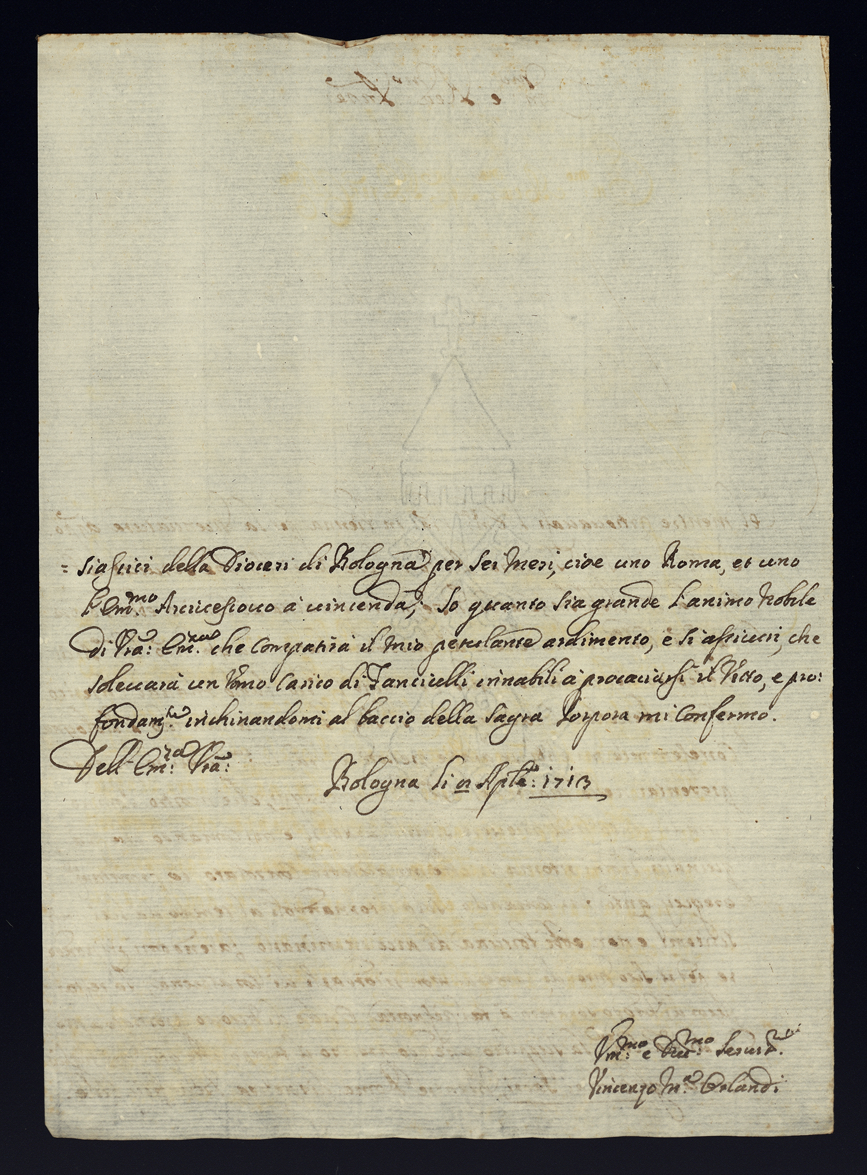 = siastici della Diocesi di Bologna per sei mesi, cioe uno Roma, et uno
l'Em:mo Arcivescovo a vincenda, So quanto sia grande l'animo Nobile
di Vra: Em:za che compatirà il mio petulante ardimento, e si assicuri, che
solevarà un Vomo Carico di Fanciulli innabili à procaciarsi il Vitto, e pro:
fondam:te inchinandomi al baccio della sagra Porpora mi Confermo.
Dell' Em:za Vra:
Bologna li Aple: 1713
Vm:mo e Dev:mo Servit:
Vincenzo M:a Orlandi